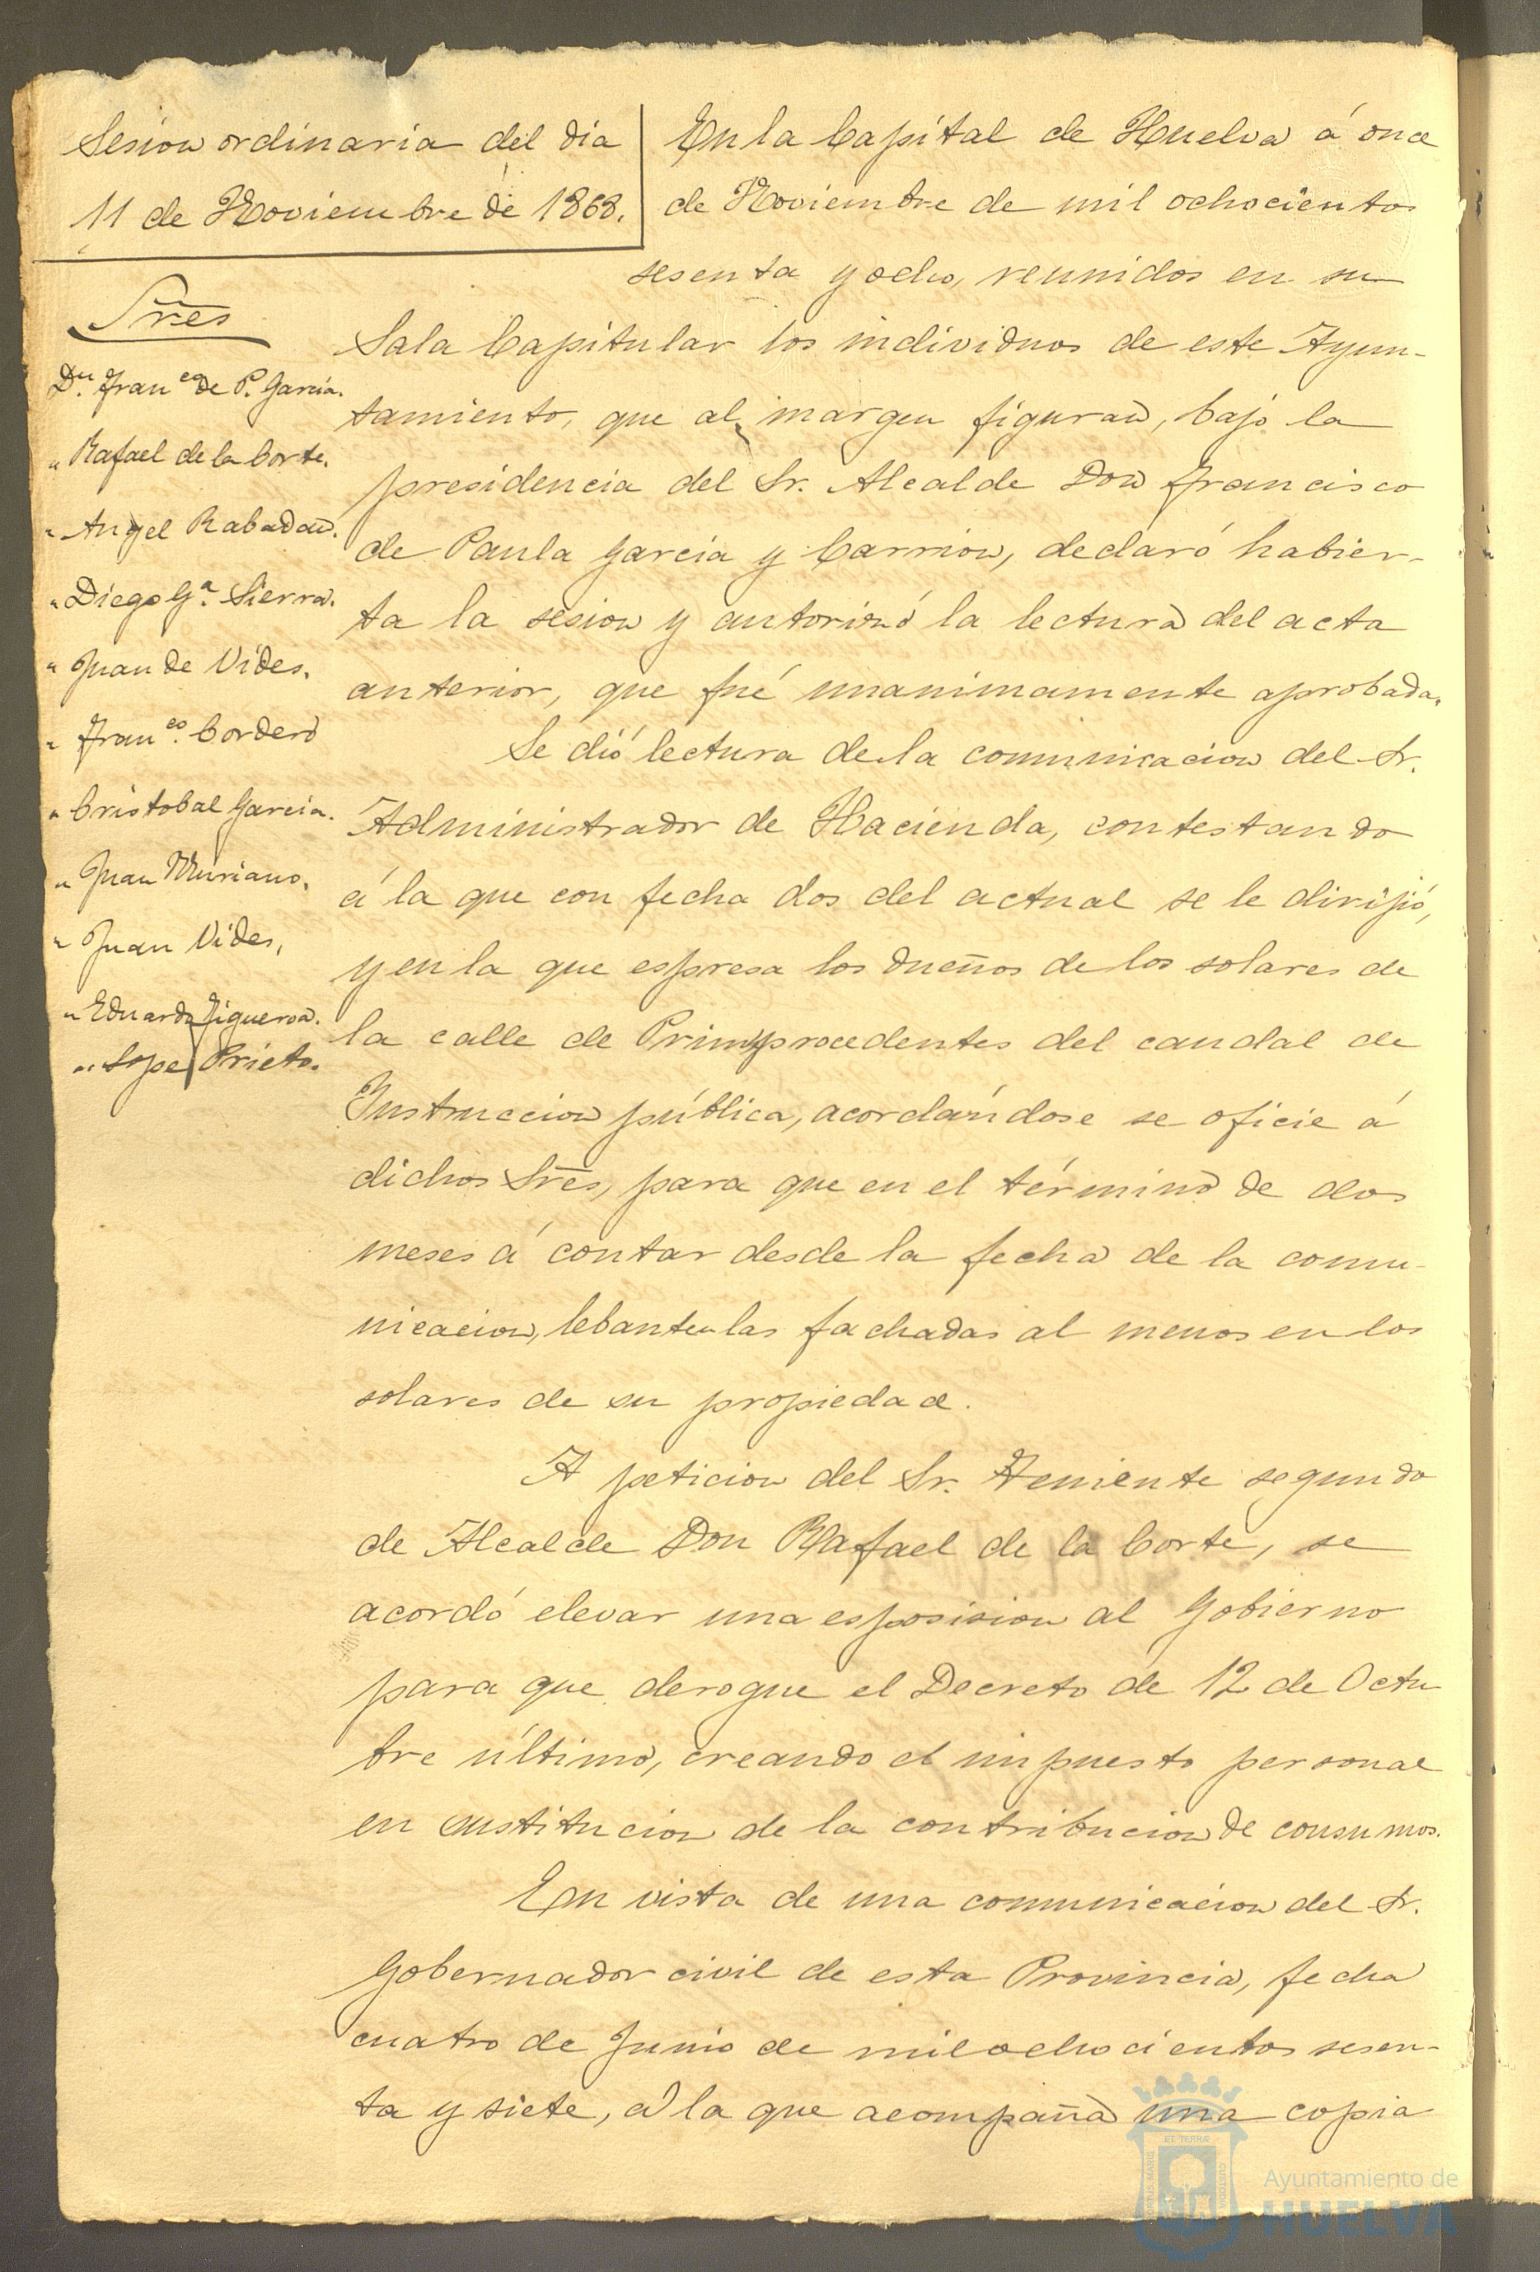 Sesion ordinaria del dia
11 de Noviembre de 1868.
Sres
Dn. Franco de P. Garcia.
" Rafael de la Corte.
" Angel Rabadan.
" Diego Ga. Sierra.
" Juan de Vides.
" Franco. Cordero
" Cristobal Garcia.
" Juan Muriano.
" Juan Vides.
" Eduardo Figueroa.
" Lope Prieto.
En la Capital de Huelva á once
de Noviembre de mil ochocientos
sesenta y ocho, reunidos en su
Sala Capitular los individuos de este Ayun-
tamiento, que al margen figuran, bajo la
presidencia del Sr. Alcalde Don Francisco
de Paula Garcia y Carrion, declaró habier-
ta la sesion y autorizó la lectura del acta
anterior, que fué unanimamente aprobada.
Se dió lectura de la comunicacion del Sr.
Administrador de Hacienda, contestando
á la que con fecha dos del actual se le dirijió,
y en la que espresa los dueños de los solares de
la calle de Prim procedentes del caudal de
Instruccion pública, acordándose se oficie á
dichos Sres, para que en el término de dos
meses á contar desde la fecha de la comu-
nicacion, lebanten las fachadas al menos en los
solares de su propiedad.
A peticion del Sr. Teniente segundo
de Alcalde Don Rafael de la Corte, se
acordó elevar una esposision al Gobierno
para que derogue el Decreto de 12 de Octu
bre último, creando el impuesto personal
en sustitucion de la contribucion de consumos.
En vista de una comunicacion del Sr.
Gobernador civil de esta Provincia, fecha
cuatro de Junio de mil ochocientos sesen-
ta y siete, á la que acompaña una copia
Ayuntamiento de
HUELVA